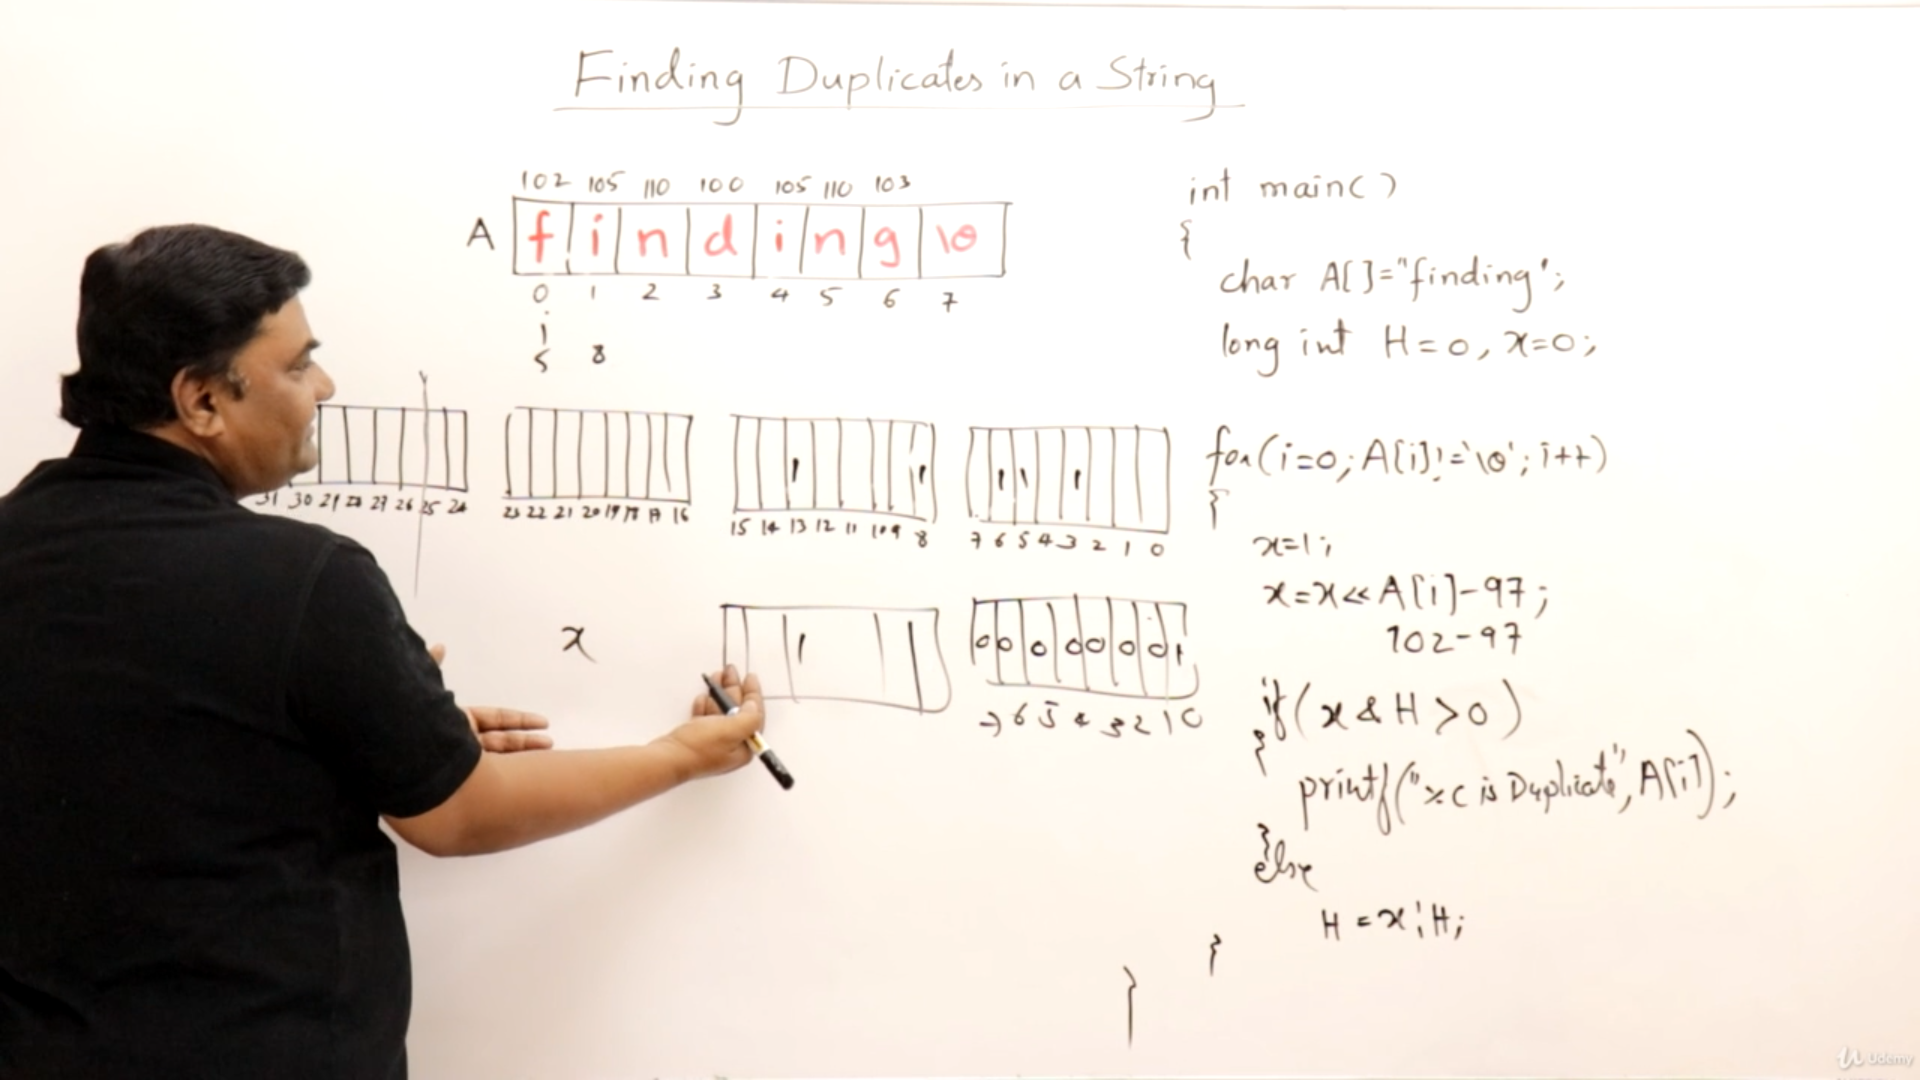 Finding Duplicates in a String
102 105 110 100 105 110 103
A f i n d i n g \0
0 1 2 3 4 5 6 7
i
5 8
31 30 29 28 27 26 25 24 23 22 21 20 19 18 17 16 15 14 13 12 11 10 9 8 7 6 5 4 3 2 1 0
x 1 0 0 0 0 0 0 0 1
7 6 5 4 3 2 1 0
int main()
{
char A[]="finding';
long int H=0, x=0;
for(i=0; A[i]!='\0'; i++)
{
x=1;
x=x<<A[i]-97;
102-97
if(x & H >0)
{
printf("%c is Duplicate", A[i]);
}
else
H = x¦H;
}
}
Udemy